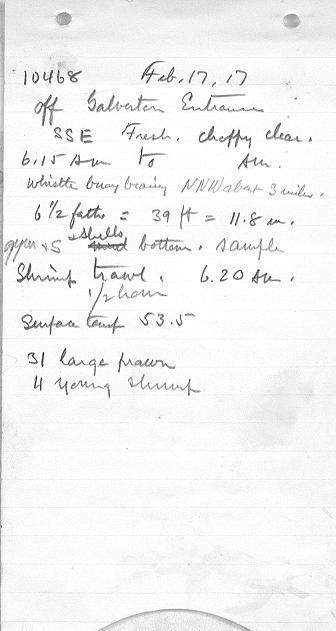 10468 Feb. 17, 17
off Galveston Entrance
SSE Fresh. choppy clear.
6.15 am to am.
Whistle buoy bearing NNW about 3 miles.
6 1/2 faths = 39 ft = 11.8 m.
& shells
S bottom. sample
Shrimp trawl. 6.20 am.
1/2 hour
Surface temp 53.5
31 large prawn
4 young shrimp